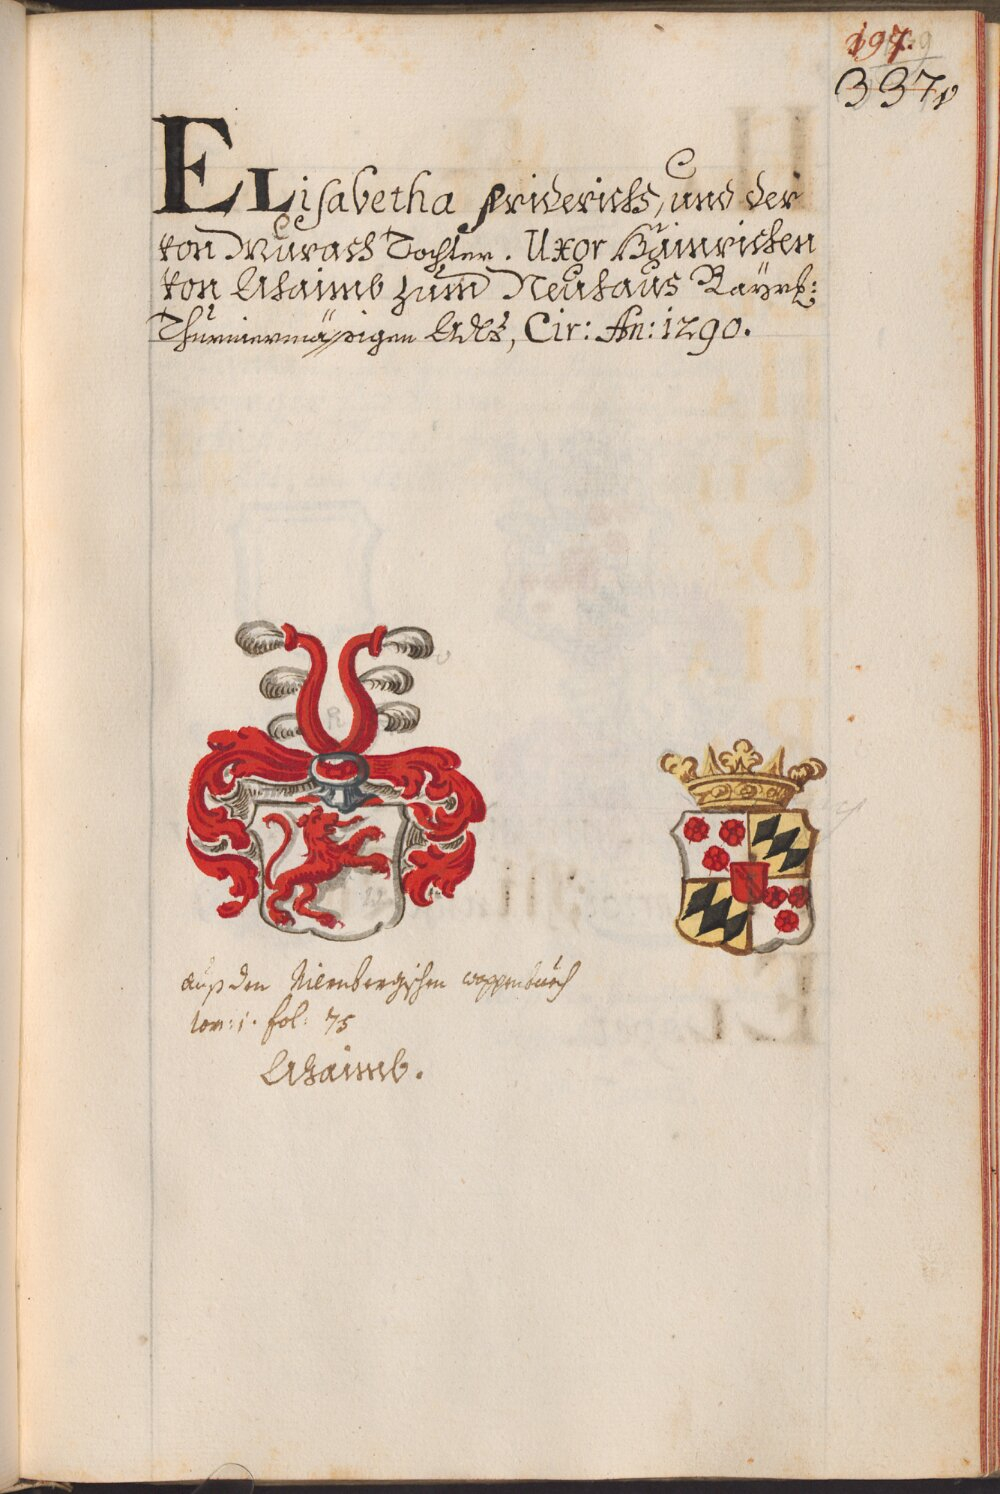 197.
337v
ELisabetha Friderichs, und der
von Murach Tochter. Uxor Hainrichen
von Ahaimb zum Neuhaus Bayrl:
Thurniermässigen Adls, Cir: An: 1290.
auß den Nirnbergischen wappenbuech
tom: 1. fol: 75
Ahaimb.